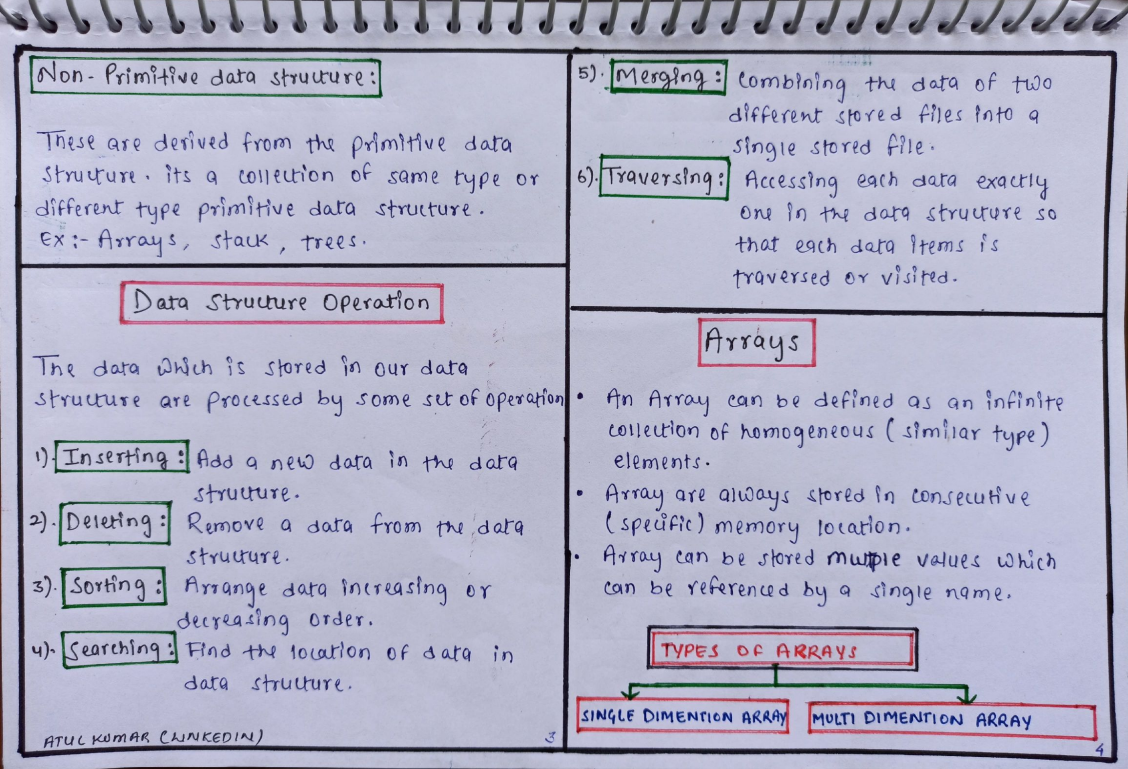 Non-Primitive data structure:
These are derived from the primitive data
structure. its a collection of same type or
different type primitive data structure.
Ex:- Arrays, stack, trees.
Data Structure Operation
The data which is stored in our data
structure are processed by some set of operation
1). Inserting: Add a new data in the data
structure.
2). Deleting: Remove a data from the data
structure.
3). Sorting: Arrange data increasing or
decreasing order.
4). Searching: Find the location of data in
data structure.
ATUL KUMAR (LINKEDIN)
3
5). Merging: Combining the data of two
different stored files into a
single stored file.
6). Traversing: Accessing each data exactly
one in the data structure so
that each data items is
traversed or visited.
Arrays
• An Array can be defined as an infinite
collection of homogeneous (similar type)
elements.
• Array are always stored in consecutive
(specific) memory location.
• Array can be stored values which
can be referenced by a single name.
TYPES OF ARRAYS
SINGLE DIMENTION ARRAY
MULTI DIMENTION ARRAY
4